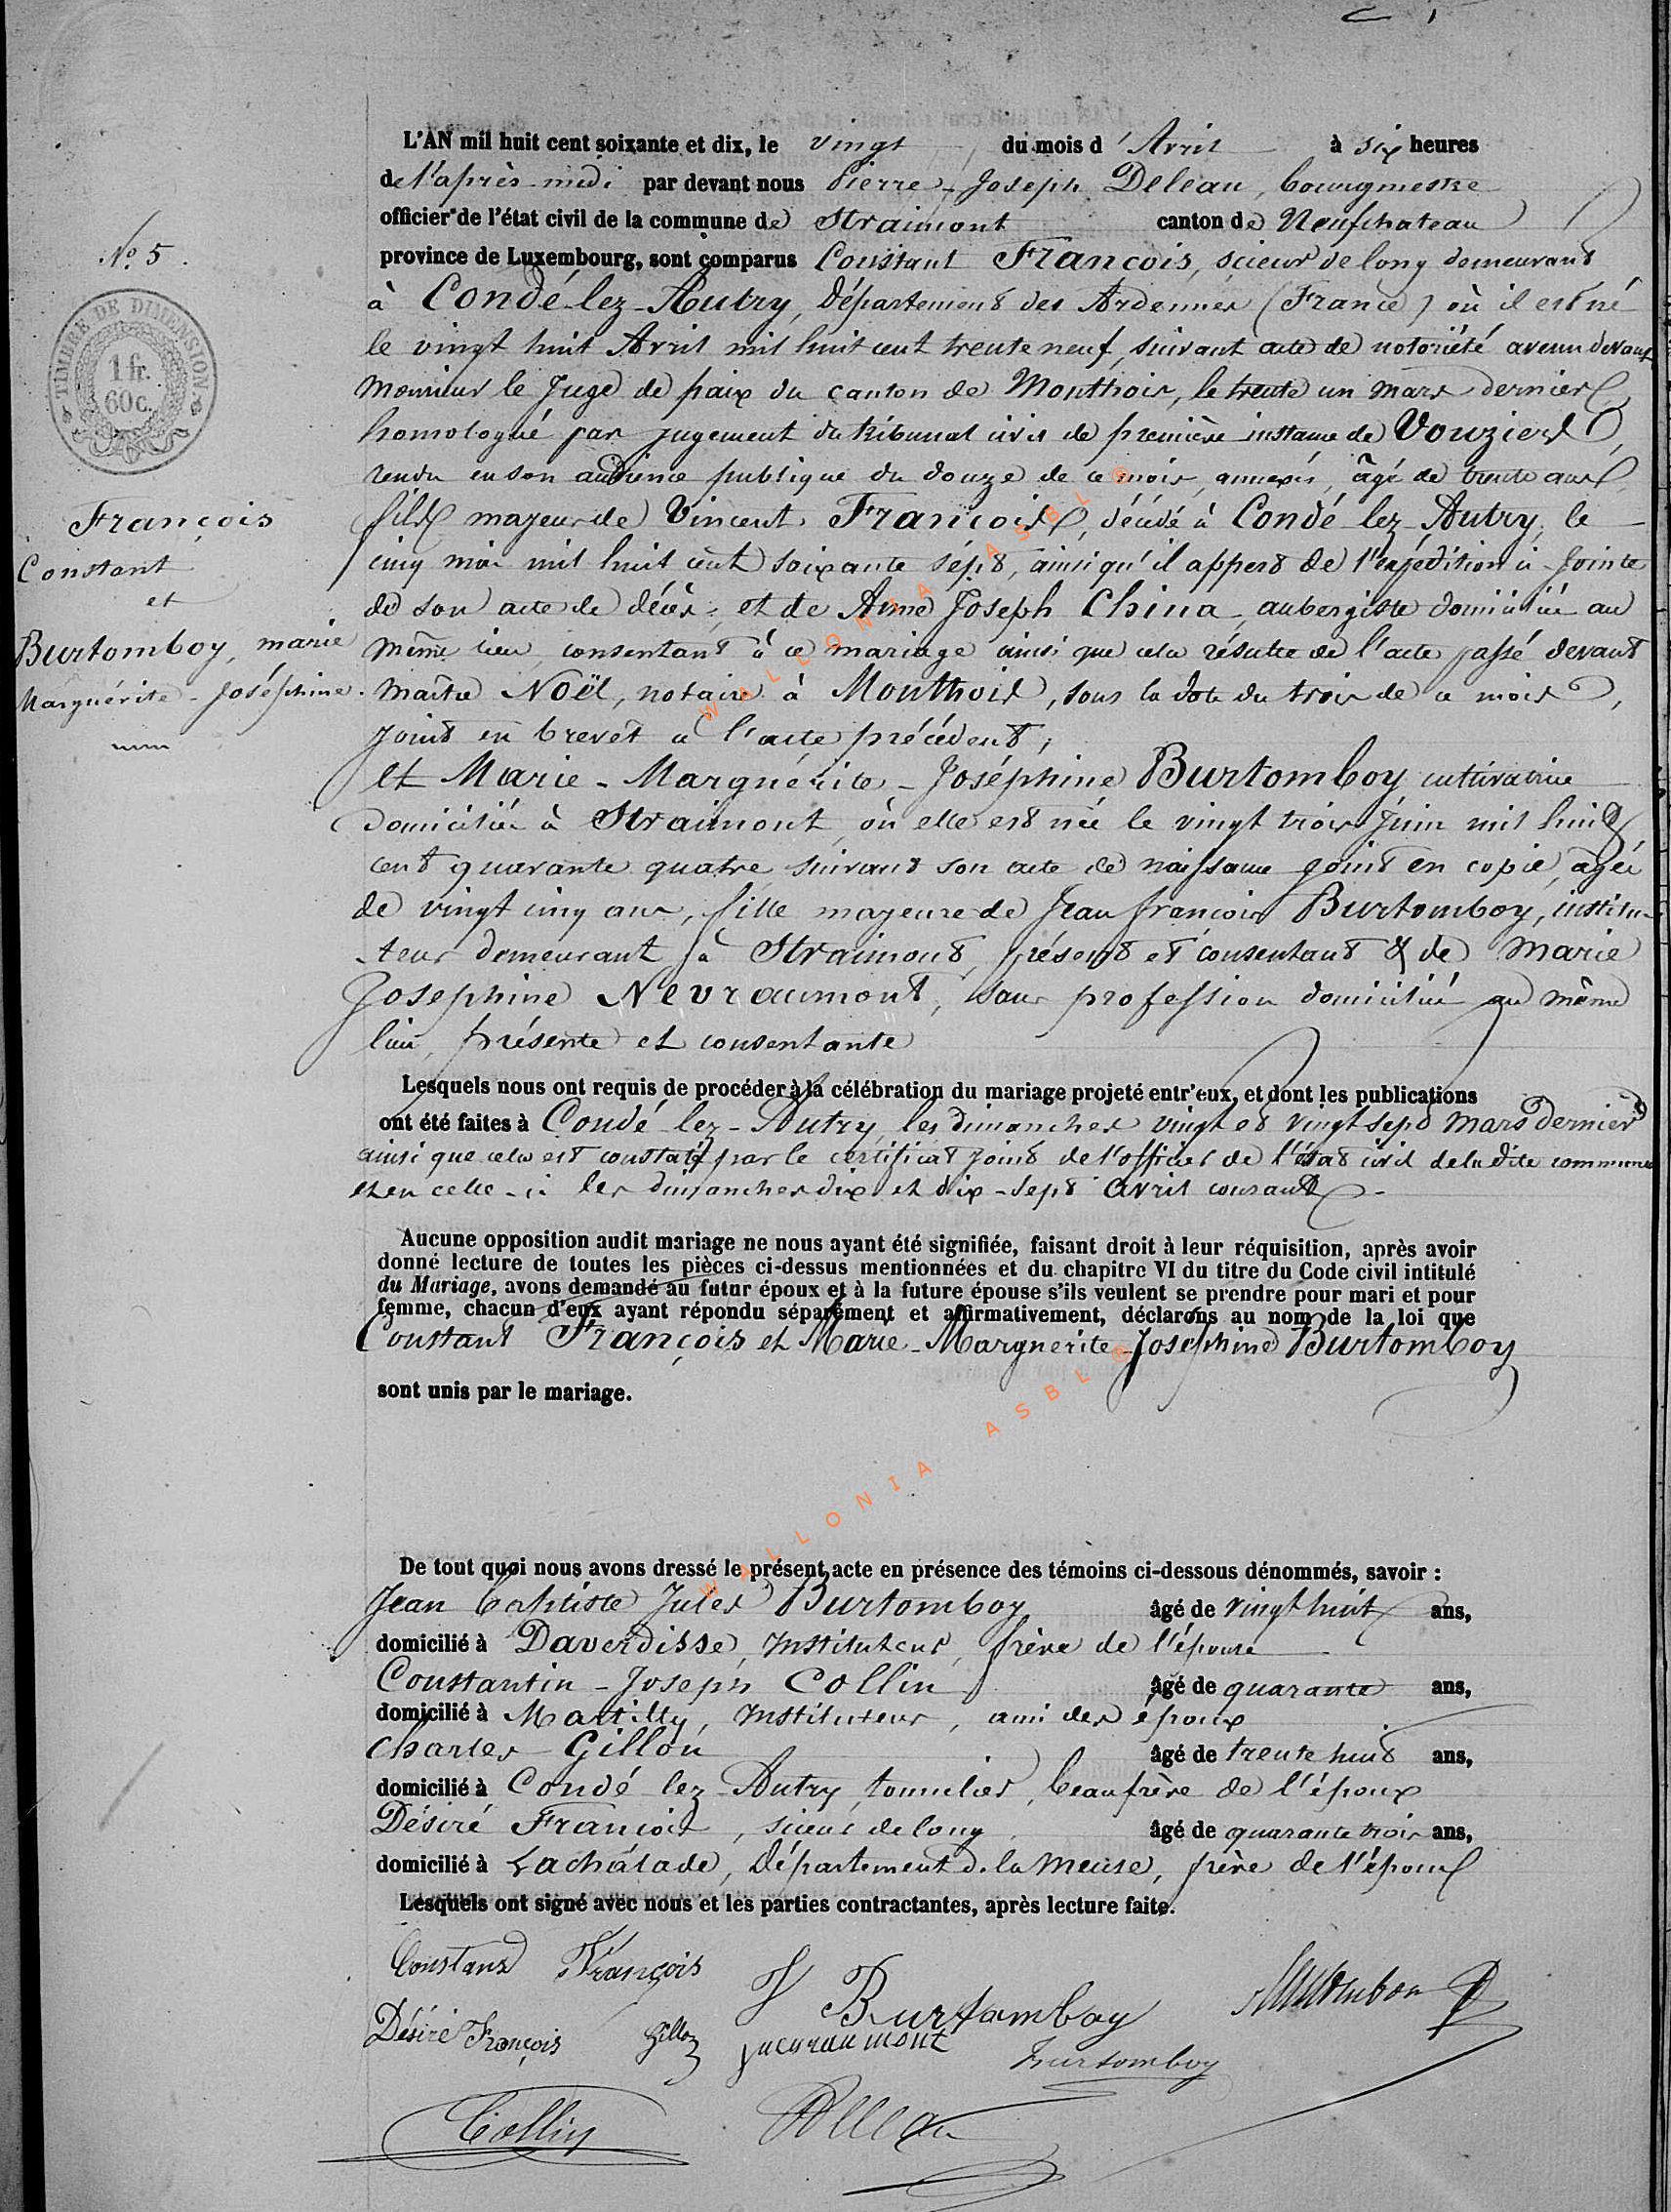 L'AN mil huit cent soixante et dix, le vingt du mois d'Avril à six heures
de l'après-midi par devant nous Pierre-Joseph Deleau, bourgmestre
officier de l'état civil de la commune de Straimont canton de Neufchateau
N° 5.
province de Luxembourg, sont comparus Constant François, scieur de long demeurant
à Condé-lez-Autry, Département des Ardennes (France) où il est né
le vingt huit Avril mil huit cent trente neuf, suivant acte de notoriété avenu devant
TIMBRE DE DIMENSION.
1 fr.
60 c.
Monsieur le Juge de paix du canton de Monthois, le trente un mars dernier,
homologué par jugement du tribunal civil de première instance de Vouziers,
rendu en son audience publique du douze de ce mois, annexés, âgé de trente ans,
François
Constant
et
Burtomboy, marie
Marguérite-Joséphine.
fils majeur de Vincent François, décédé à Condé-lez-Autry, le
cinq mai mil huit cent soixante sept, ainsi qu'il appert de l'expédition ci-jointe
de son acte de décès, et de Anne Joseph China, aubergiste domiciliée au
même lieu, consentant à ce mariage ainsi que cela résulte de l'acte passé devant
Maître Noël, notaire à Monthois, sous la date du trois de ce mois,
joint en brevet a l'acte précédent;
et Marie-Marguérite-Joséphine Burtomboy cultivatrice
domiciliée à Straimont, où elle est née le vingt trois Juin mil huit
cent quarante quatre suivant son acte de naissance joint en copie, âgée
de vingt cinq ans, fille majeure de Jean françois Burtomboy, institu-
-teur demeurant à Straimont, présent et consentant & de Marie
Josephine Nevraumont, sans profession domiciliée au même
lieu, présente et consentante
Lesquels nous ont requis de procéder à la célébration du mariage projeté entr'eux, et dont les publications
ont été faites à Condé-lez-Autry, les dimanches vingt et vingt sept Mars dernier
ainsi que cela est constaté par le certificat joint de l'officier de l'état civil de la dite commune
et en celle-ci les dimanches dix et dix-sept avril courant.
Aucune opposition audit mariage ne nous ayant été signifiée, faisant droit à leur réquisition, après avoir
donné lecture de toutes les pièces ci-dessus mentionnées et du chapitre VI du titre du Code civil intitulé
du Mariage, avons demandé au futur époux et à la future épouse s'ils veulent se prendre pour mari et pour
femme, chacun d'eux ayant répondu séparément et affirmativement, déclarons au nom de la loi que
Constant François et Marie-Marguerite-Josephine Burtomboy
sont unis par le mariage.
WALLONIA ASBL ©
WALLONIA ASBL ©
De tout quoi nous avons dressé le présent acte en présence des témoins ci-dessous dénommés, savoir :
Jean baptiste Jules Burtomboy âgé de vingt huit ans,
domicilié à Daverdisse, Instituteur, frère de l'épouse
Constantin-Joseph Collin âgé de quarante ans,
domicilié à Martilly, Instituteur, ami des époux
Charles Gillon âgé de trente huit ans,
domicilié à Condé lez-Autry, tonnelier, beaufrère de l'époux
Désiré François, scieur de long âgé de quarante trois ans,
domicilié à Lachalade, Département de la Meuse, frère de l'époux
Lesquels ont signé avec nous et les parties contractantes, après lecture faite.
Constant François
J Burtomboy
Désiré François
Gillon
Burtomboy
Collin
Deleau